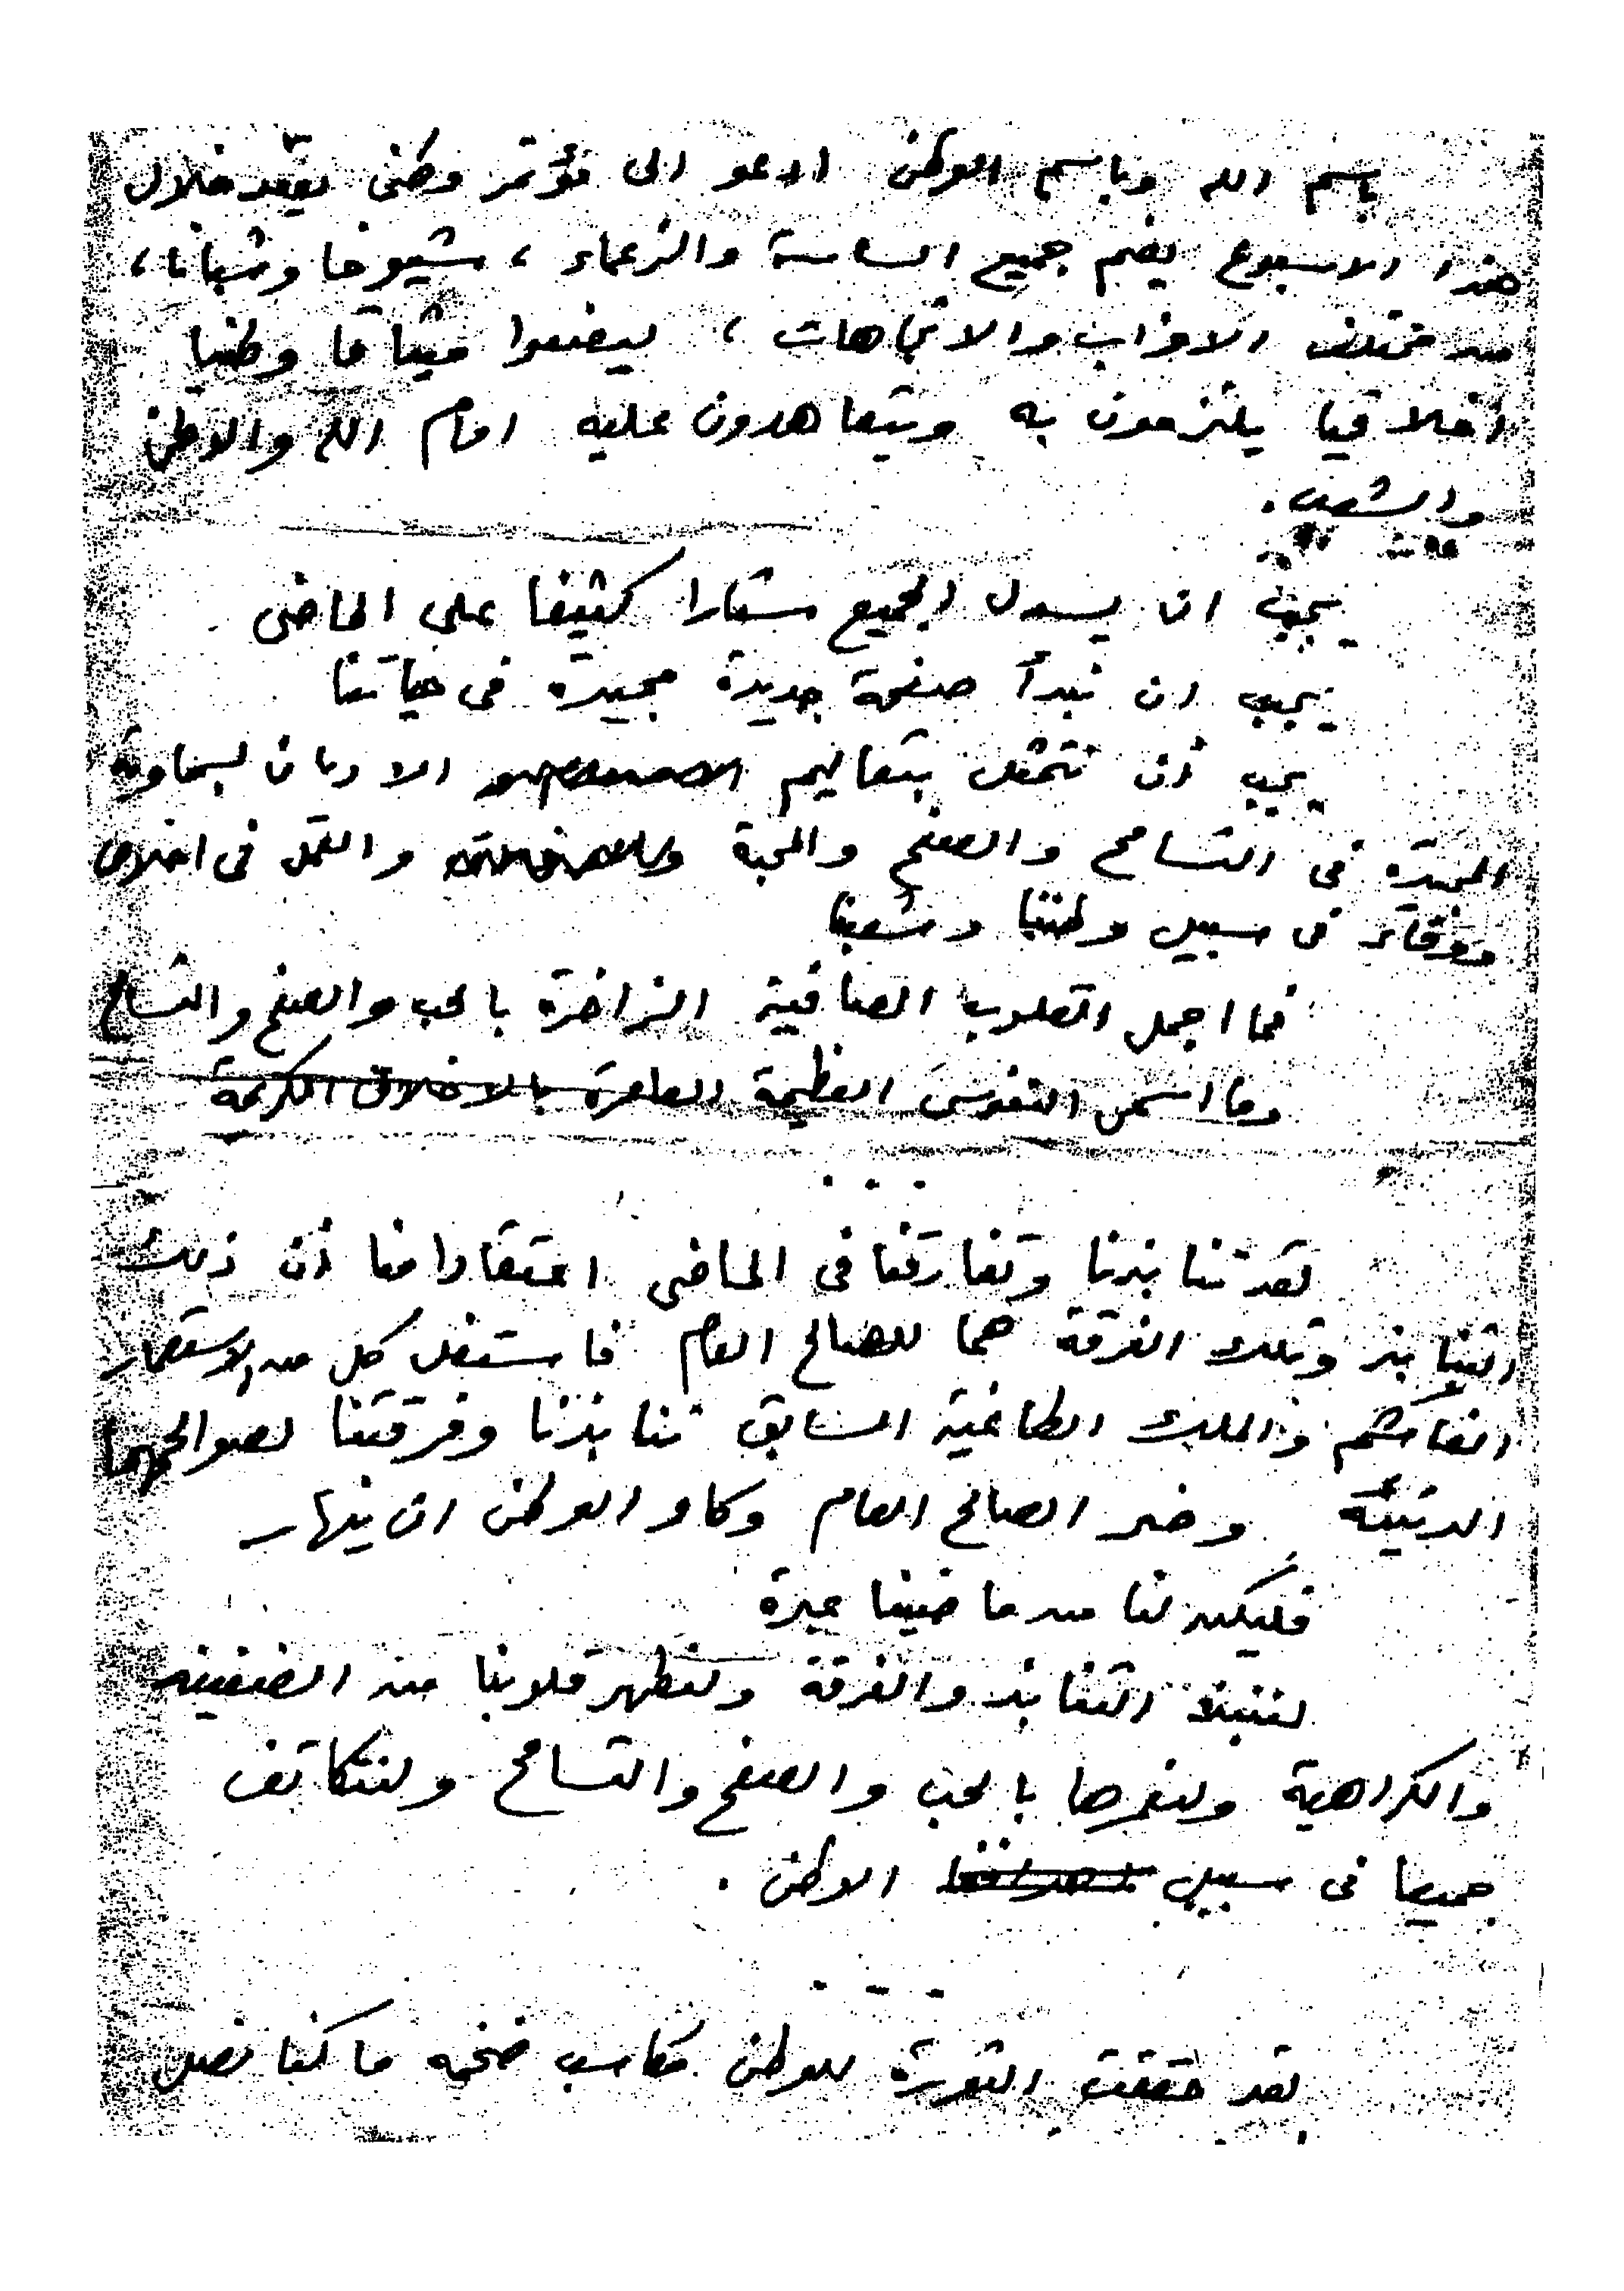 باسم الله وباسم الوطن ادعو الى مؤتمر وطنى يعقد خلال
هذا الاسبوع يضم جميع الساسة والزعماء ، شيوخا وشبانا ،
من مختلف الاحزاب والاتجاهات ، ليضعوا ميثاقا وطنيا
أخلاقيا يلتزمون به ويتعاهدون عليه امام الله والوطن
والشعب .
يجب ان يسدل الجميع ستارا كثيفا على الماضى
يجب ان نبدأ صفحة جديدة مجيدة فى حياتنا
يجب أن نتمثل بتعاليم الاديان السماوية
المجيدة فى التسامح والصفح والمحبة والعمل فى اخلاص
فى سبيل وطننا وشعبنا
فما اجمل القلوب الصافية الزاخرة بالحب والصفح والتسامح
وما اسمى النفوس العظيمة العامرة بالاخلاق الكريمة
...
لقد تنابذنا وتفارقنا فى الماضى اعتقادا منا أن ذلك
التنابذ وتلك الفرقة هما للصالح العام فاستغل كل من الاستعمار
الغاشم والملك الطاغية السابق تنابذنا وفرقتنا لصوالحهما
الدنيئة وضر الصالح العام وكاد الوطن ان ينهار
فليكن لنا من ماضينا عبرة
لننبذ التنابذ والفرقة ولنطهر قلوبنا من الضغينه
والكراهية ولنغمرها بالحب والصفح والتسامح ولنتكاتف
جميعا فى سبيل الوطن .
...
لقد حققت الثورة للوطن مكاسب ضخمه ما كنا نصل